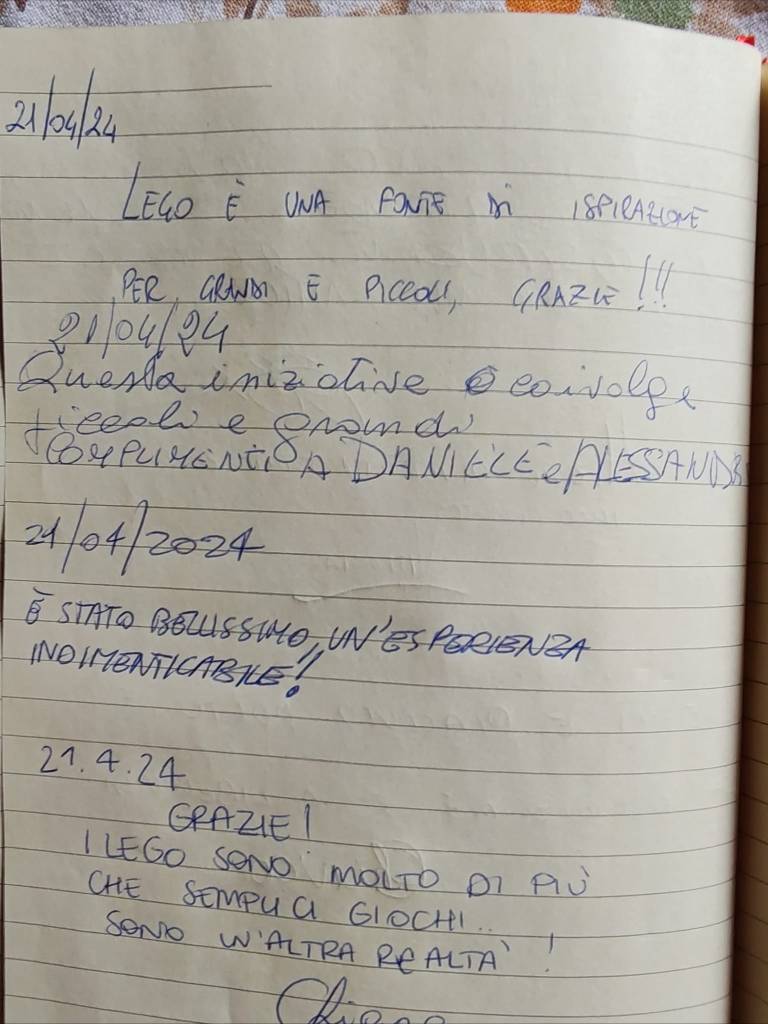 21/04/24
LEGO È UNA FONTE DI ISPIRAZIONE
PER GRANDI E PICCOLI, GRAZIE!!!
21/04/24
Questa iniziative coivolge
piccoli e grandi
COMPLIMENTI A DANIELE e ALESSANDR
21/04/2024
È STATO BELLISSIMO, UN'ESPERIENZA
INDIMENTICABILE!
21.4.24
GRAZIE!
I LEGO SONO MOLTO DI PIÙ
CHE SEMPLICI GIOCHI..
SONO UN'ALTRA REALTÀ!
Chiara